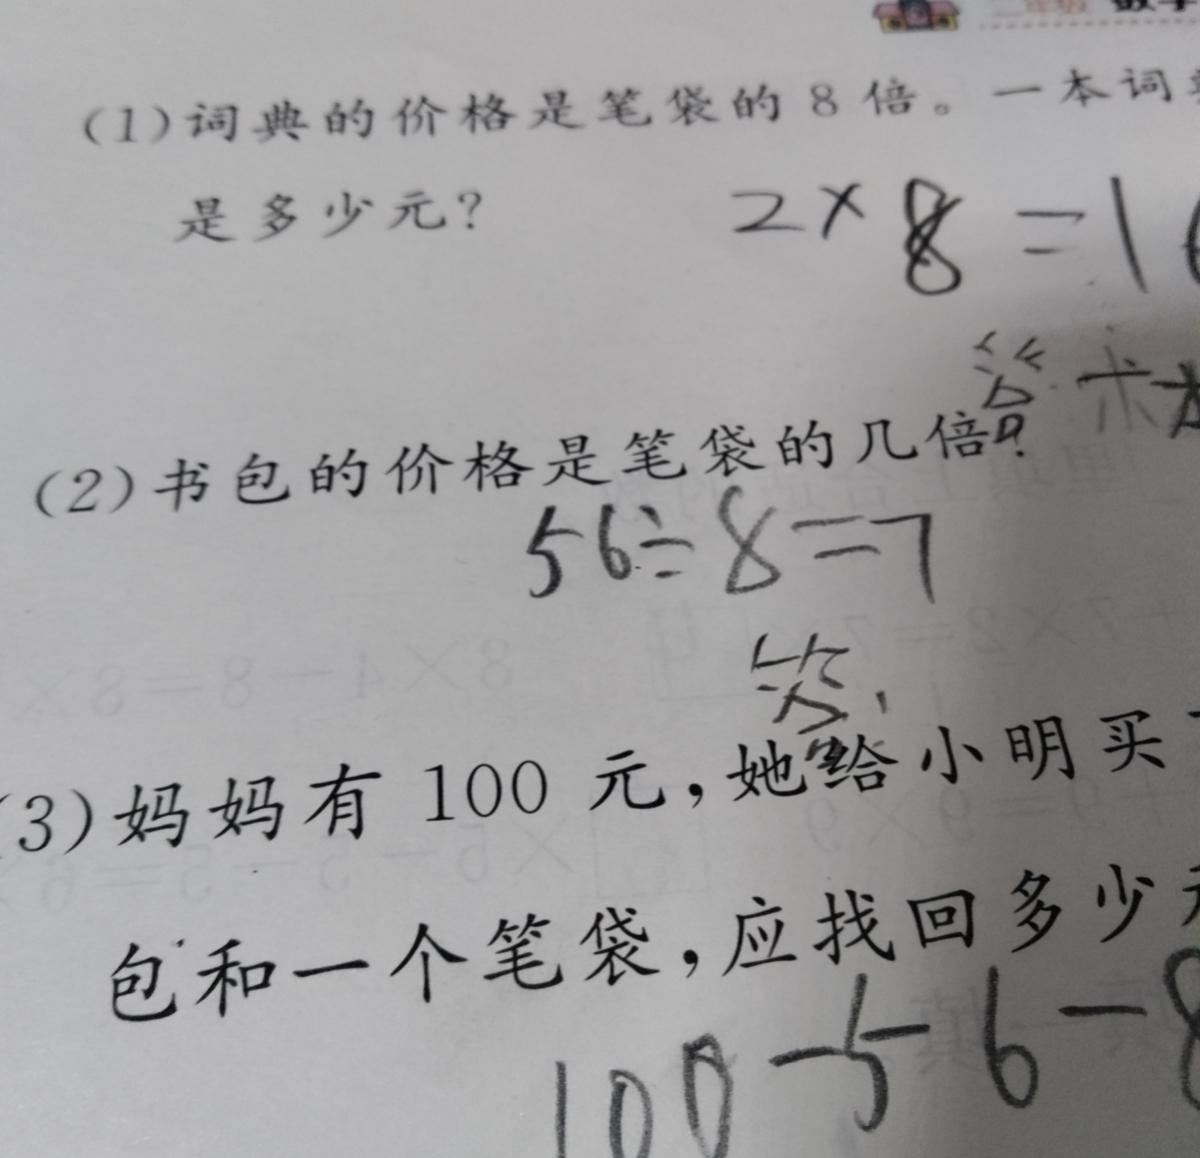 二年级 数学
(1)词典的价格是笔袋的8倍。一本词
是多少元?
2×8=1
答
(2)书包的价格是笔袋的几倍?
56÷8=7
(3)妈妈有100元,她给小明买
包和一个笔袋,应找回多少
100-56-8